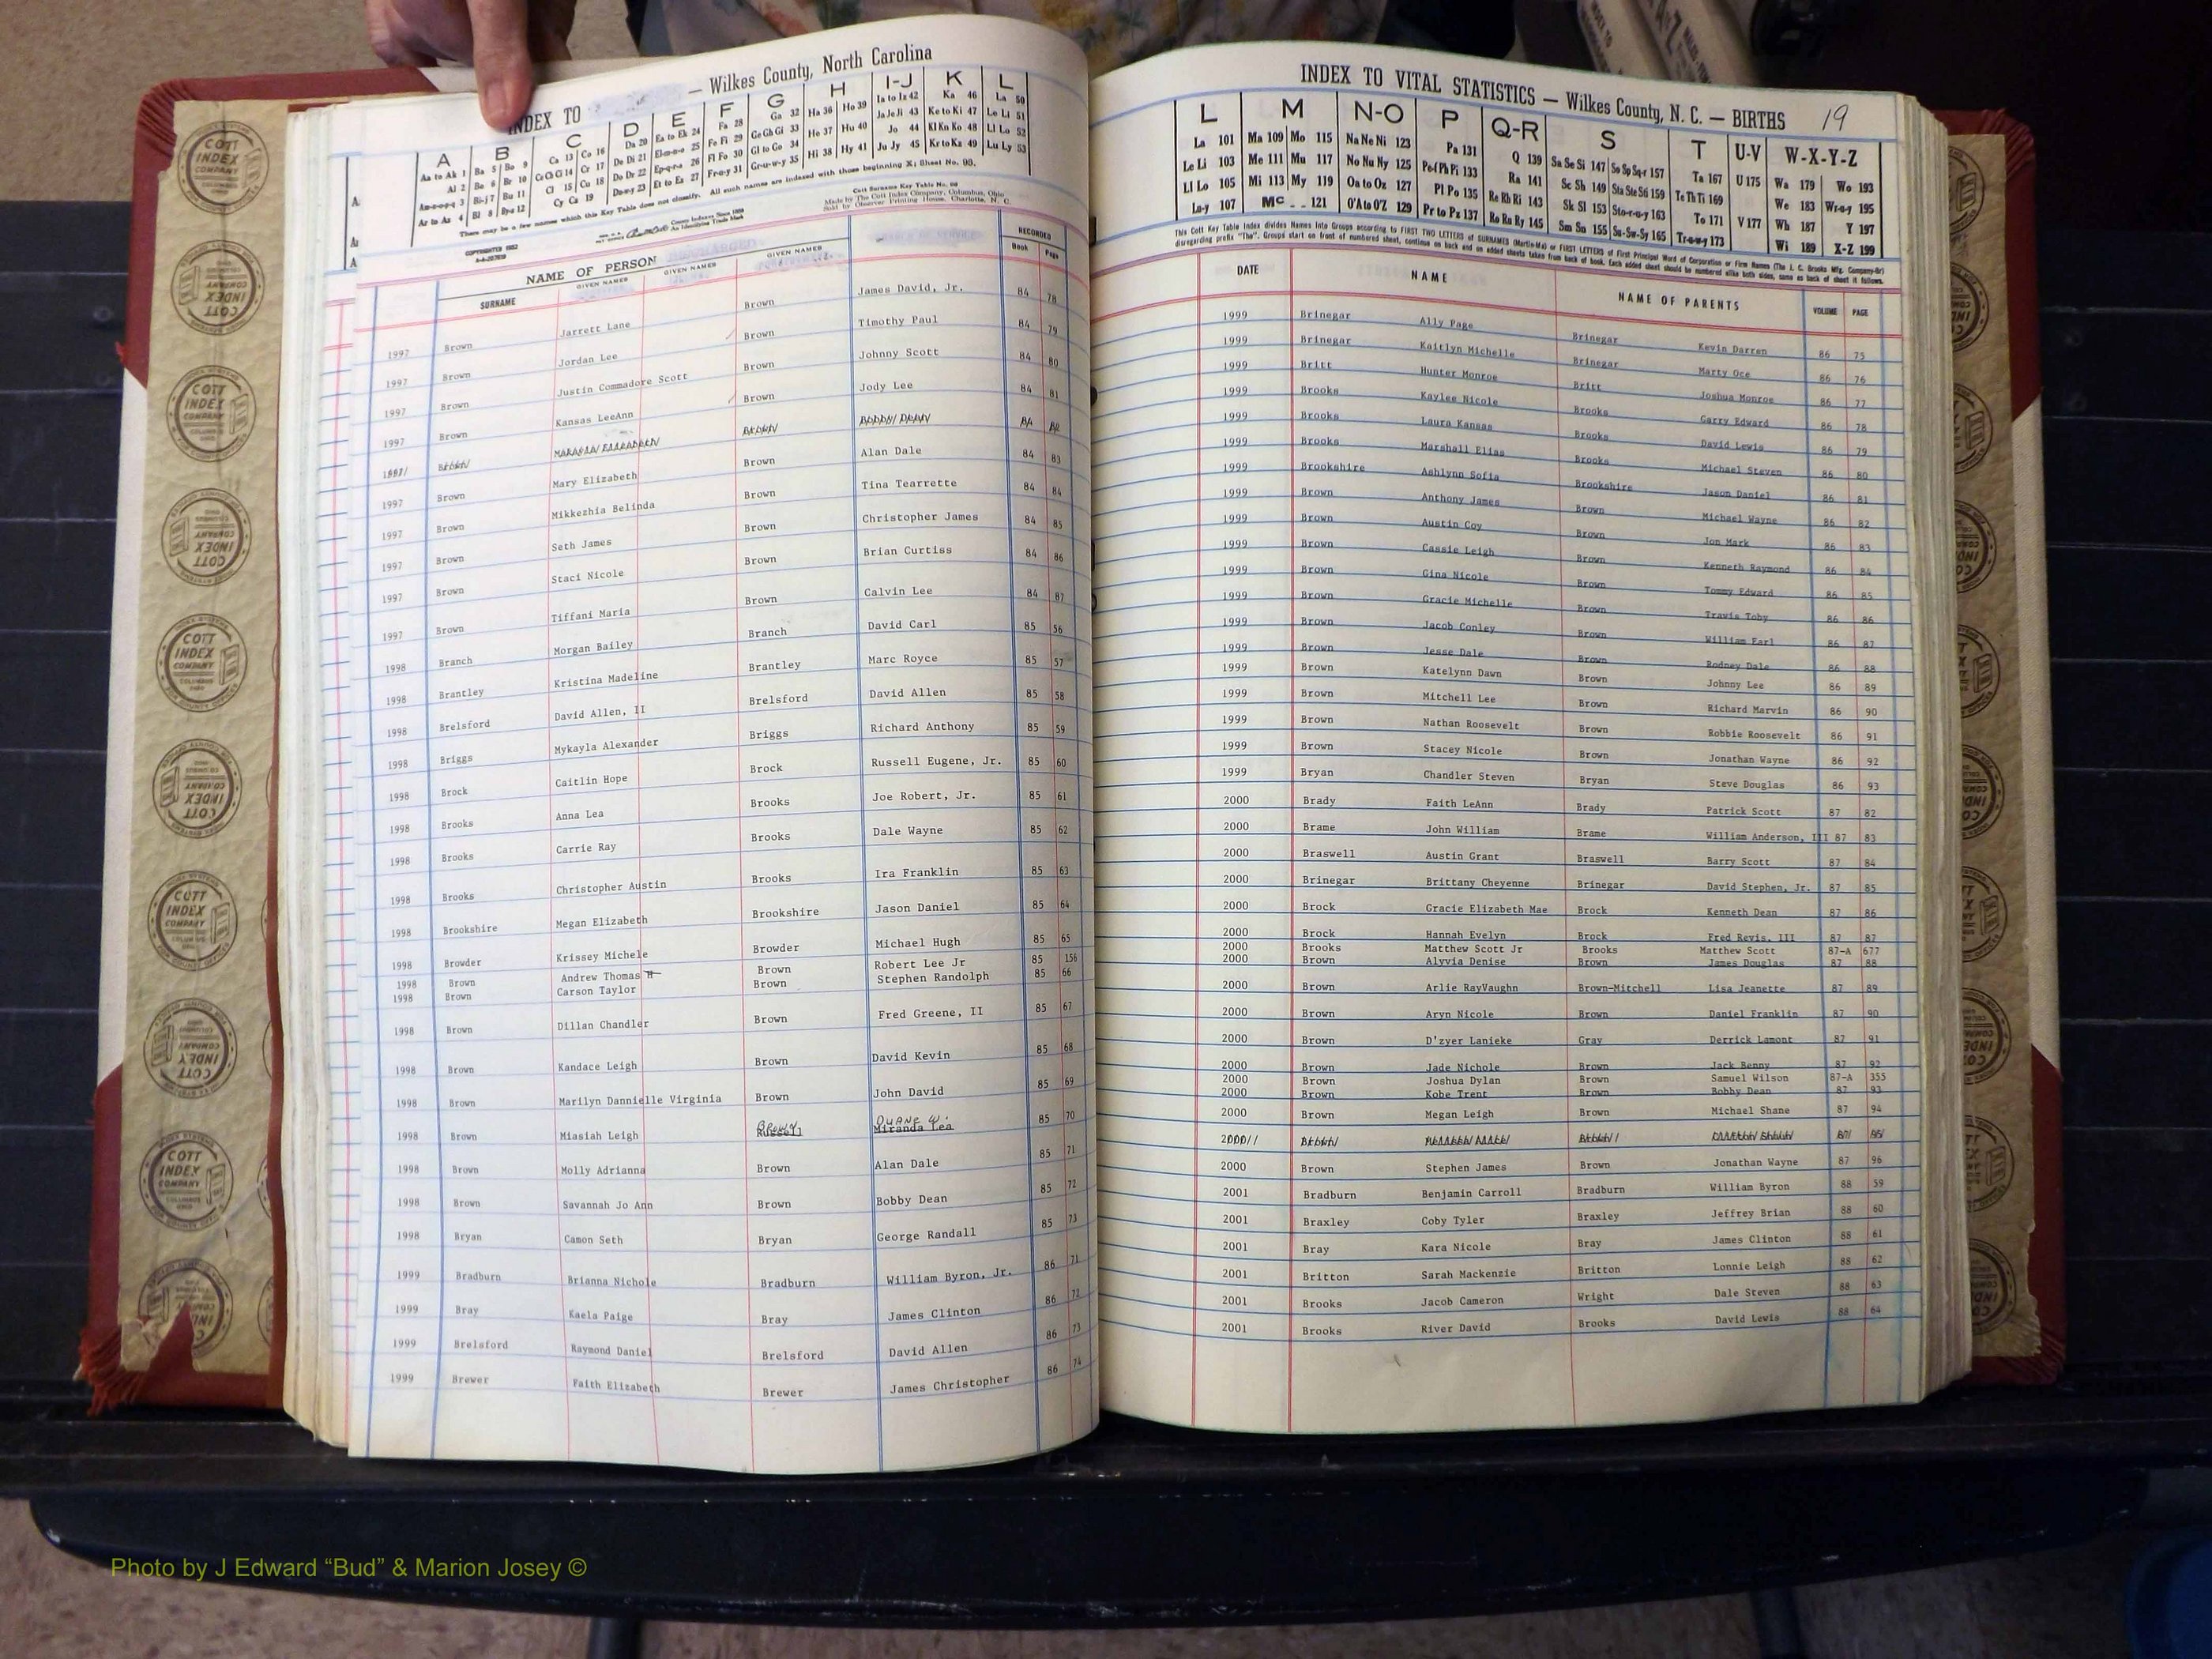 INDEX TO — Wilkes County, North Carolina
A B C D E F G H I-J K L
Aa to Ak 1 Ba 5 Bo 9 Ca 13 Co 16 Da 20 Ea to Ek 24 Fa 28 Ga 32 Ha 36 Ho 39 Ia to Iz 42 Ka 46 La 50
Al 2 Be 6 Br 10 Ce Ch Gi 14 Cr 17 De Di 21 El-m-n-o 25 Fe Fi 29 Ge Gh Gi 33 He 37 Hu 40 Ja Je Ji 43 Ke to Ki 47 Le Li 51
Am-n-o-p-q 3 Bi-j 7 Bu 11 Cl 15 Cu 18 Do Dr 22 Ep-q-r-s 26 Fl Fo 30 Gl to Go 34 Hi 38 Hy 41 Jo 44 Kl Kn Ko 48 Ll Lo 52
Ar to Az 4 Bl 8 By-z 12 Cy Cz 19 Du-w-y 23 Et to Ez 27 Fr-u-y 31 Gr-u-w-y 35 Ju Jy 45 Kr to Kz 49 Lu Ly 53
There may be a few names which this Key Table does not classify. All such names are indexed with those beginning X; Sheet No. 98.
Cott Surname Key Table No.
Made by The Cott Index Company, Columbus, Ohio
Sold by Observer Printing House, Charlotte, N. C.
NAME OF PERSON
SURNAME GIVEN NAMES GIVEN NAMES RECORDED Book Page
1997 Brown Jarrett Lane Brown James David, Jr. 84 78
1997 Brown Jordan Lee Brown Timothy Paul 84 79
1997 Brown Justin Commadore Scott Brown Johnny Scott 84 80
1997 Brown Kansas LeeAnn Brown Jody Lee 84 81
1997 Brown Mary Elizabeth Brown Alan Dale 84 83
1997 Brown Mikkezhia Belinda Brown Tina Tearrette 84 84
1997 Brown Seth James Brown Christopher James 84 85
1997 Brown Staci Nicole Brown Brian Curtiss 84 86
1997 Brown Tiffani Maria Brown Calvin Lee 84 87
1998 Branch Morgan Bailey Branch David Carl 85 56
1998 Brantley Kristina Madeline Brantley Marc Royce 85 57
1998 Brelsford David Allen, II Brelsford David Allen 85 58
1998 Briggs Mykayla Alexander Briggs Richard Anthony 85 59
1998 Brock Caitlin Hope Brock Russell Eugene, Jr. 85 60
1998 Brooks Anna Lea Brooks Joe Robert, Jr. 85 61
1998 Brooks Carrie Ray Brooks Dale Wayne 85 62
1998 Brooks Christopher Austin Brooks Ira Franklin 85 63
1998 Brookshire Megan Elizabeth Brookshire Jason Daniel 85 64
1998 Browder Krissey Michele Browder Michael Hugh 85 65
1998 Brown Andrew Thomas Brown Robert Lee Jr 85 156
1998 Brown Carson Taylor Brown Stephen Randolph 85 66
1998 Brown Dillan Chandler Brown Fred Greene, II 85 67
1998 Brown Kandace Leigh Brown David Kevin 85 68
1998 Brown Marilyn Dannielle Virginia Brown John David 85 69
Brown DUANE W.
1998 Brown Miasiah Leigh Russell Miranda Lea 85 70
1998 Brown Molly Adrianna Brown Alan Dale 85 71
1998 Brown Savannah Jo Ann Brown Bobby Dean 85 72
1998 Bryan Camon Seth Bryan George Randall 85 73
1999 Bradburn Brianna Nichole Bradburn William Byron, Jr. 86 71
1999 Bray Kaela Paige Bray James Clinton 86 72
1999 Brelsford Raymond Daniel Brelsford David Allen 86 73
1999 Brewer Faith Elizabeth Brewer James Christopher 86 74
INDEX TO VITAL STATISTICS — Wilkes County, N. C. — BIRTHS 19
L M N-O P Q-R S T U-V W-X-Y-Z
La 101 Ma 109 Mo 115 Na Ne Ni 123 Pa 131 Q 139 Sa Se Si 147 So Sp Sq-r 157 Ta 167 U 175 Wa 179 Wo 193
Le Li 103 Me 111 Mu 117 No Nu Ny 125 Pe-f Ph Pi 133 Ra 141 Sc Sh 149 Sta Ste Sti 159 Te Th Ti 169 We 183 Wr-u-y 195
Ll Lo 105 Mi 113 My 119 Oa to Oz 127 Pl Po 135 Re Rh Ri 143 Sk Sl 153 Sto-r-u-y 163 To 171 V 177 Wh 187 Y 197
Lu-y 107 Mc 121 O'A to O'Z 129 Pr to Pz 137 Ro Ru Ry 145 Sm Sn 155 Su-Sw-Sy 165 Tr-u-w-y 173 Wi 189 X-Z 199
This Cott Key Table Index divides Names into Groups according to FIRST TWO LETTERS of SURNAMES (Martin-Ma) or FIRST LETTERS of First Principal Word of Corporation or Firm Names (The J. C. Brooks Mfg. Company-Br)
disregarding prefix "The". Groups start on front of numbered sheet, continue on back and on added sheets taken from back of book. Each added sheet should be numbered alike both sides, same as back of sheet it follows.
DATE NAME NAME OF PARENTS VOLUME PAGE
1999 Brinegar Ally Page Brinegar Kevin Darren 86 75
1999 Brinegar Kaitlyn Michelle Brinegar Marty Oce 86 76
1999 Britt Hunter Monroe Britt Joshua Monroe 86 77
1999 Brooks Kaylee Nicole Brooks Garry Edward 86 78
1999 Brooks Laura Kansas Brooks David Lewis 86 79
1999 Brooks Marshall Elias Brooks Michael Steven 86 80
1999 Brookshire Ashlynn Sofia Brookshire Jason Daniel 86 81
1999 Brown Anthony James Brown Michael Wayne 86 82
1999 Brown Austin Coy Brown Jon Mark 86 83
1999 Brown Cassie Leigh Brown Kenneth Raymond 86 84
1999 Brown Gina Nicole Brown Tommy Edward 86 85
1999 Brown Gracie Michelle Brown Travis Toby 86 86
1999 Brown Jacob Conley Brown William Earl 86 87
1999 Brown Jesse Dale Brown Rodney Dale 86 88
1999 Brown Katelynn Dawn Brown Johnny Lee 86 89
1999 Brown Mitchell Lee Brown Richard Marvin 86 90
1999 Brown Nathan Roosevelt Brown Robbie Roosevelt 86 91
1999 Brown Stacey Nicole Brown Jonathan Wayne 86 92
1999 Bryan Chandler Steven Bryan Steve Douglas 86 93
2000 Brady Faith LeAnn Brady Patrick Scott 87 82
2000 Brame John William Brame William Anderson, III 87 83
2000 Braswell Austin Grant Braswell Barry Scott 87 84
2000 Brinegar Brittany Cheyenne Brinegar David Stephen, Jr. 87 85
2000 Brock Gracie Elizabeth Mae Brock Kenneth Dean 87 86
2000 Brock Hannah Evelyn Brock Fred Revis, III 87 87
2000 Brooks Matthew Scott Jr Brooks Matthew Scott 87-A 677
2000 Brown Alyvia Denise Brown James Douglas 87 88
2000 Brown Arlie RayVaughn Brown-Mitchell Lisa Jeanette 87 89
2000 Brown Aryn Nicole Brown Daniel Franklin 87 90
2000 Brown D'zyer Lanieke Gray Derrick Lamont 87 91
2000 Brown Jade Nichole Brown Jack Benny 87 92
2000 Brown Joshua Dylan Brown Samuel Wilson 87-A 355
2000 Brown Kobe Trent Brown Bobby Dean 87 93
2000 Brown Megan Leigh Brown Michael Shane 87 94
2000 Brown Stephen James Brown Jonathan Wayne 87 96
2001 Bradburn Benjamin Carroll Bradburn William Byron 88 59
2001 Braxley Coby Tyler Braxley Jeffrey Brian 88 60
2001 Bray Kara Nicole Bray James Clinton 88 61
2001 Britton Sarah Mackenzie Britton Lonnie Leigh 88 62
2001 Brooks Jacob Cameron Wright Dale Steven 88 63
2001 Brooks River David Brooks David Lewis 88 64
COTT INDEX COMPANY
Photo by J Edward “Bud” & Marion Josey ©